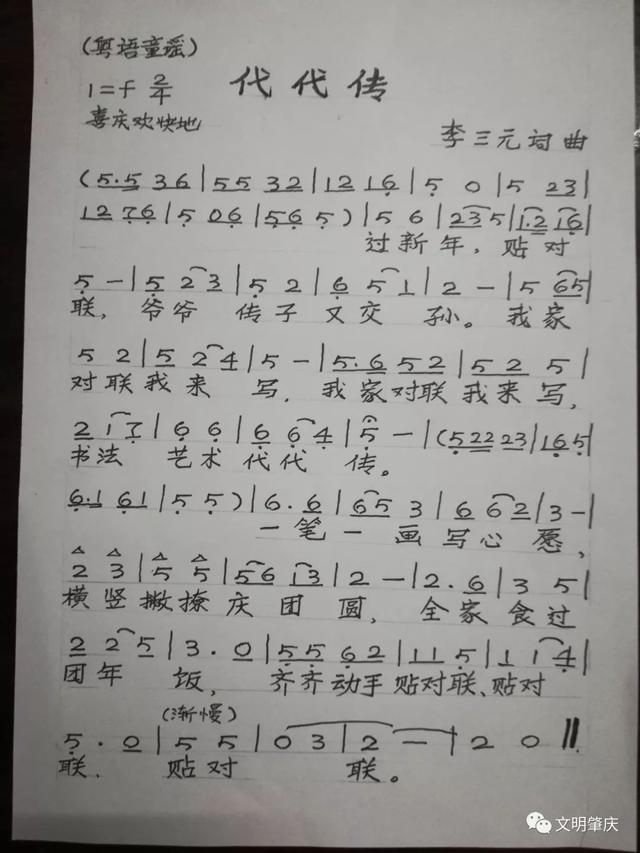 (粤语童谣)
1=f 2/4 代代传
喜庆欢快地
李三元词曲
(5.5 36|55 32|12 16|5 0|5 23|
12 76|5 06|56 5)|5 6|23 5|1.2 16|
过新年,贴对
5 -|5 2 3|5 2|6 5 1|2 -|5 65|
联,爷爷 传子 又交 孙。我家
5 2|5 2 4|5 -|5.6 52|52 5|
对联我来 写,我家对联我来写,
2 1 7|6 6|6 6 4|5 -|(5 22 23|1 6 5|
书法 艺术 代代 传。
6.1 61|5 5)|6. 6|65 3|6 6 2|3-|
一笔一 画写心 愿,
2 3|5 5|56 13|2 -|2. 6|3 5|
横竖撇撩庆 团 圆, 全家食过
2 2 5|3. 0|55 62|11 5|1 1 4|
团年 饭, 齐齐动手贴对联、贴对
(渐慢)
5. 0|5 5|0 3|2 -|2 0‖
联. 贴对 联。
文明肇庆